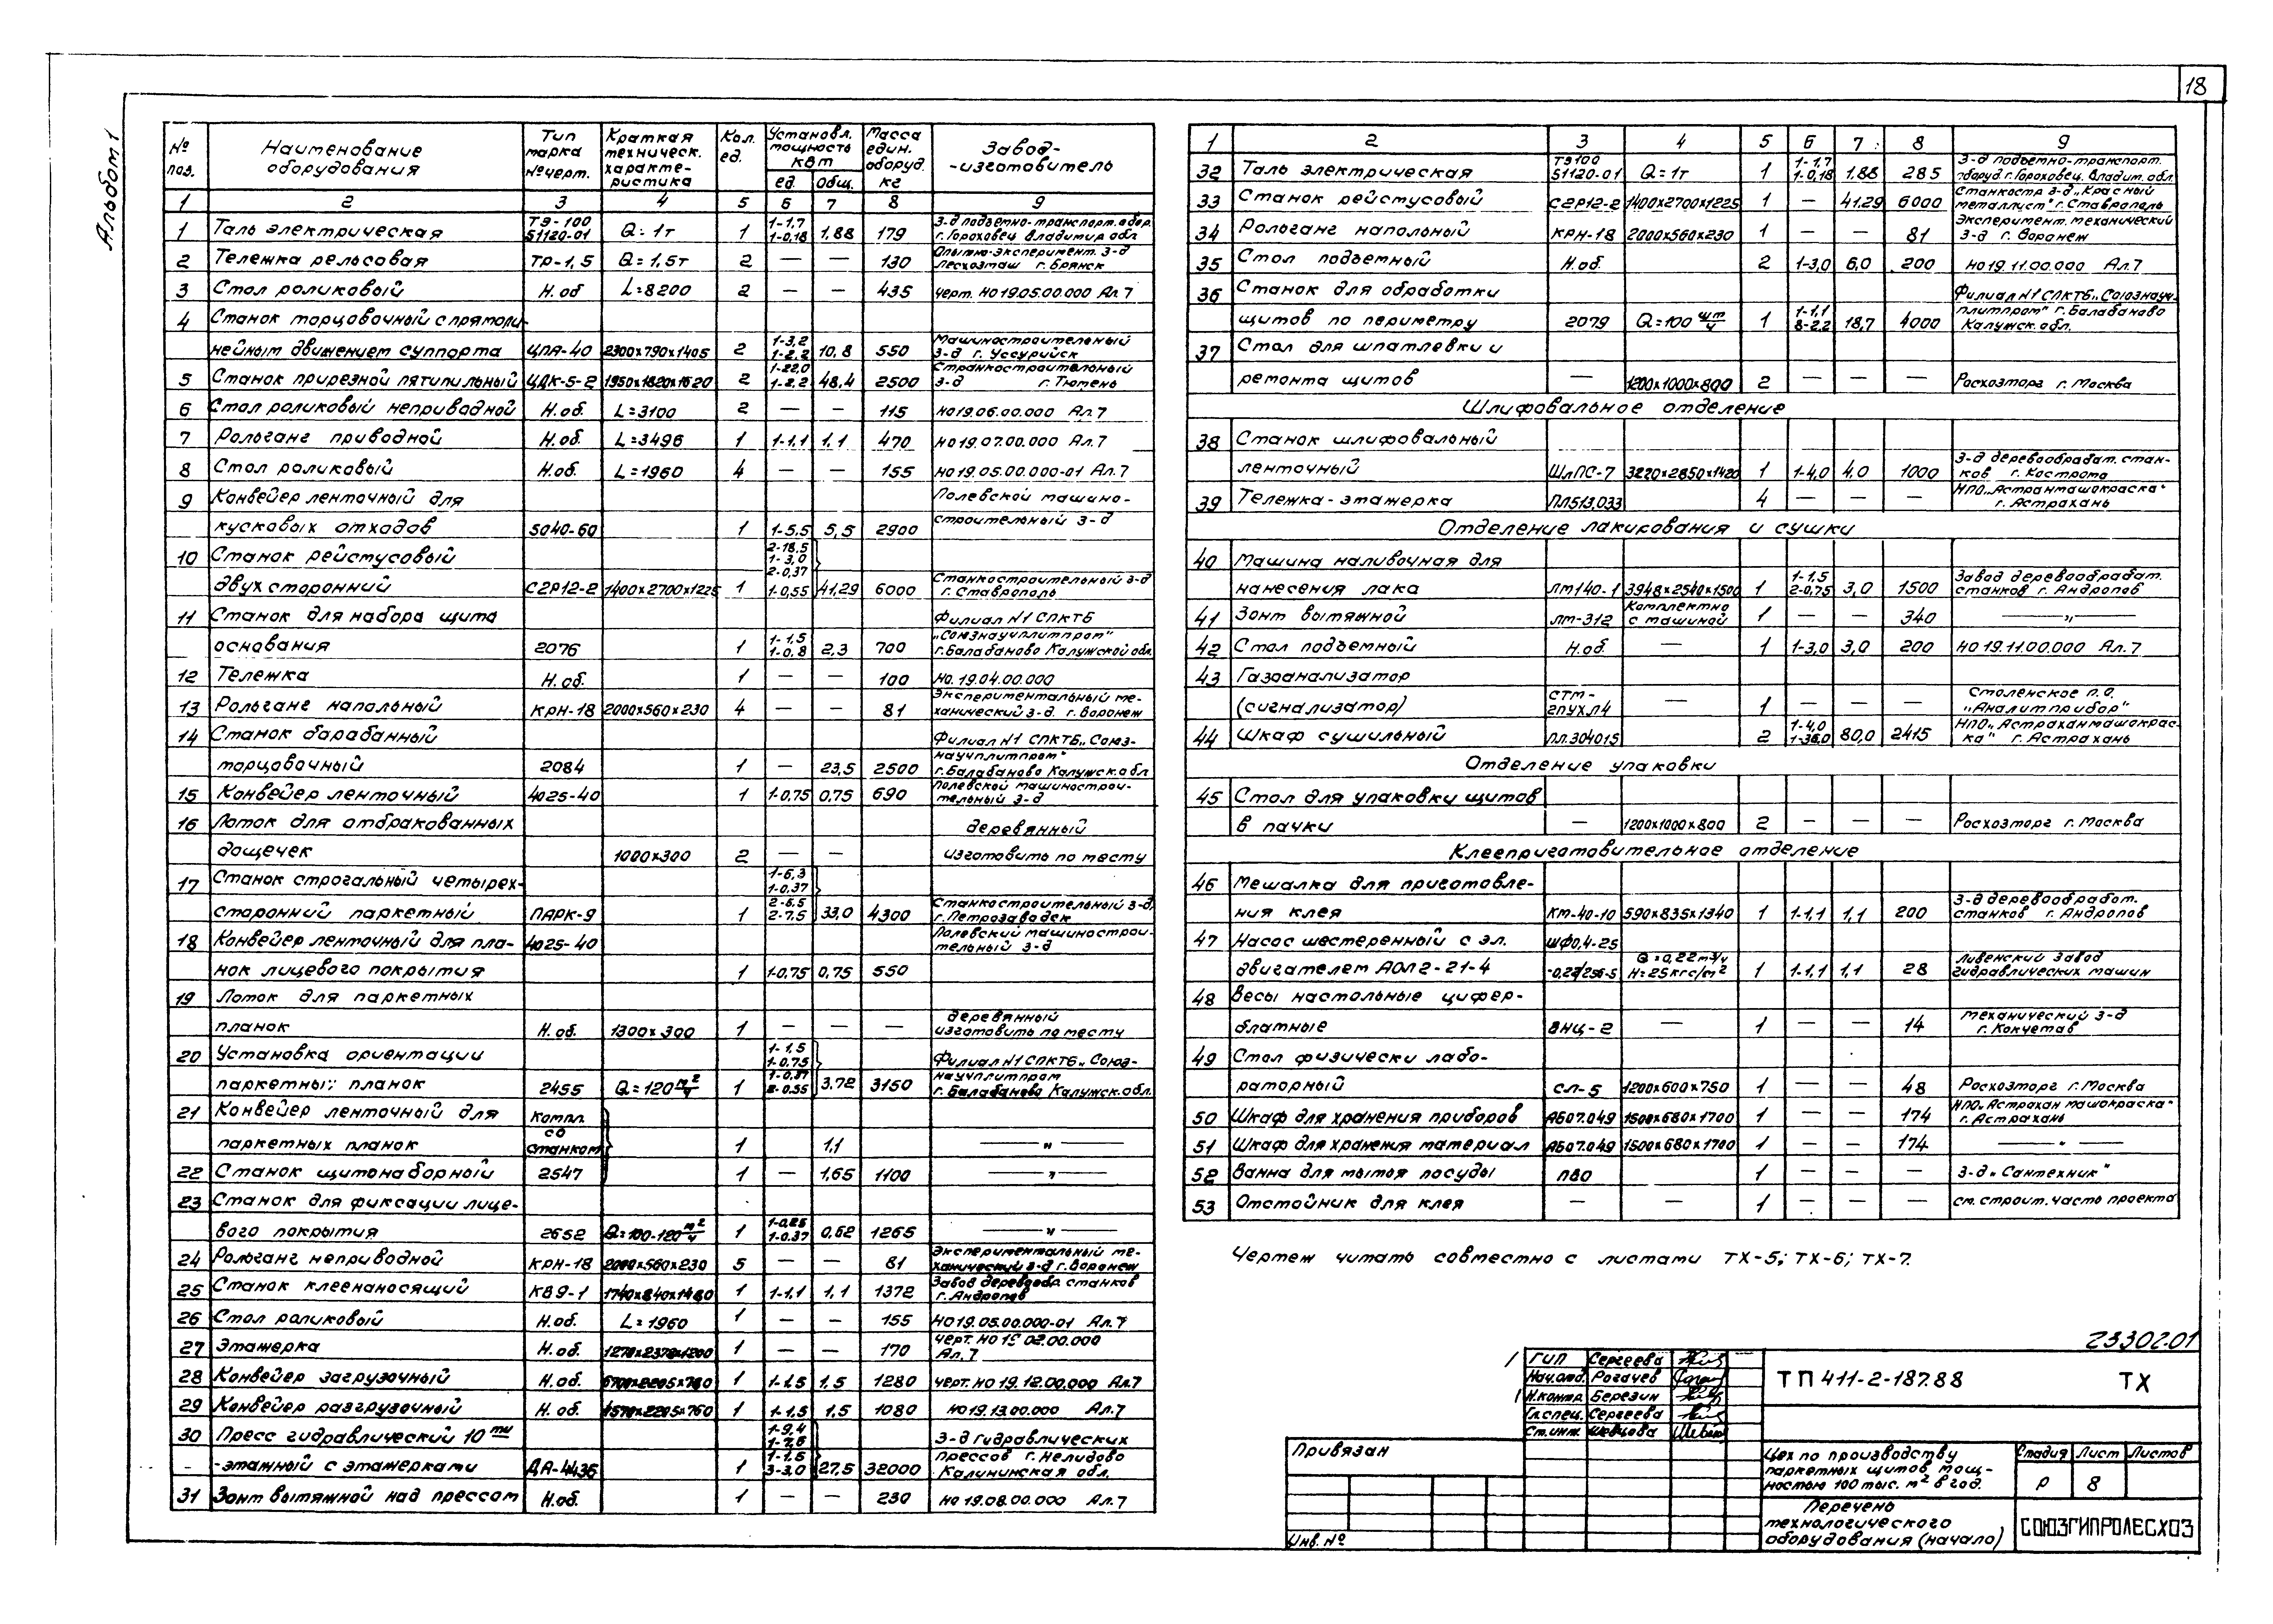 18
Альбом 1
№ поз. Наименование оборудования Тип марка № черт. Краткая техническ. характеристика Кол. ед. Установл. мощность кВт ед. общ. Масса един. оборуд. кг Завод-изготовитель
1 2 3 4 5 6 7 8 9
1 Таль электрическая ТЭ-100 51120-01 Q=1т 1 1-1,7 1-0,18 1,88 179 З-д подъемно-транспорт. обор. г. Гороховец Владимир. обл
2 Тележка рельсовая ТР-1,5 Q=1,5т 2 — — 130 Опытно-эксперимент. з-д Лесхозмаш г. Брянск
3 Стол роликовый Н.об L=8200 2 — — 435 черт. НО 19.05.00.000 Ал. 7
4 Станок торцовочный с прямоли-
нейным движением суппорта ЦПА-40 2300х790х1405 2 1-3,2 1-2,2 10,8 550 Машиностроительный з-д г. Уссурийск
5 Станок прирезной пятипильный ЦДК-5-2 1950х1820х1520 2 1-22,0 1-2,2 48,4 2500 Странкостроительный з-д г. Тюмень
6 Стол роликовый неприводной Н.об. L=3100 2 — — 115 НО19.06.00.000 Ал. 7
7 Рольганг приводной Н.об. L=3496 1 1-1,1 1,1 470 НО19.07.00.000 Ал. 7
8 Стол роликовый Н.об. L=1960 4 — — 155 НО19.05.00.000-01 Ал. 7
9 Конвейер ленточный для Полевской машино-
кусковых отходов 5040-60 1 1-5,5 5,5 2900 строительный з-д
10 Станок рейсмусовый 2-18,5 1-3,0 2-0,37
двухсторонний С2Р12-2 1400х2700х1225 1 1-0,55 41,29 6000 Станкостроительный з-д г. Ставрополь
11 Станок для набора щита Филиал №1 СПКТБ
основания 2076 1 1-1,5 1-0,8 2,3 700 „Союзнаучплитпром" г. Балабаново Калужской обл.
12 Тележка Н.об. 1 — — 100 НО. 19.04.00.000
13 Рольганг напольный КРН-18 2000х560х230 4 — — 81 Экспериментальный ме-ханический з-д. г. Воронеж
14 Станок барабанный Филиал №1 СПКТБ „Союз-
торцовочный 2084 1 — 23,5 2500 научплитпром" г. Балабаново Калужск. обл
15 Конвейер ленточный 4025-40 1 1-0,75 0,75 690 Полевской машинострои-тельный з-д
16 Лоток для отбракованных деревянный
дощечек 1000х300 2 — — изготовить по месту
17 Станок строгальный четырех- 1-6,3 1-0,37
сторонний паркетный ПАРК-9 1 2-5,5 2-7,5 33,0 4300 Станкостроительный з-д, г. Петрозаводск
18 Конвейер ленточный для пла- 4025-40 Полевский машинострои-тельный з-д
нок лицевого покрытия 1 1-0,75 0,75 550
19 Лоток для паркетных
планок Н.об. 1300х300 1 — — — деревянный изготовить по месту
20 Установка ориентации 1-1,5 1-0,75 Филиал №1 СПКТБ „Союз-
паркетных планок 2455 Q=120 м²/ч 1 1-0,37 2-0,55 3,72 3150 научплитпром г. Балабаново Калужск. обл.
21 Конвейер ленточный для компл.
паркетных планок со станком 1 1,1 — „ —
22 Станок щитонаборный 2547 1 — 1,65 1100 — „ —
23 Станок для фиксации лице-
вого покрытия 2652 Q=100-120 м²/ч 1 1-0,25 1-0,37 0,62 1265 — „ —
24 Рольганг неприводной КРН-18 2000х560х230 5 — — 81 Экспериментальный ме-ханический з-д г. Воронеж
25 Станок клеенаносящий КВ9-1 1740х840х1480 1 1-1,1 1,1 1372 Завод деревообр. станков г. Андропов
26 Стол роликовый Н.об. L=1960 1 — — 155 НО19.05.00.000-01 Ал. 7
27 Этажерка Н.об. 1 — — 170 черт. НО 19 02.00.000 Ал. 7
28 Конвейер загрузочный Н.об. 1 1-1,5 1,5 1280 черт. НО 19.12.00.000 Ал.7
29 Конвейер разгрузочный Н.об. 1 1-1,5 1,5 1080 НО19.13.00.000 Ал. 7
30 Пресс гидравлический 10ти 1-9,4 1-7,6 З-д гидравлических
-этажный с этажерками ДА-4436 1 1-1,5 3-3,0 27,5 32000 прессов г. Нелидово Калининская обл.
31 Зонт вытяжной над прессом Н.об. 1 — — 230 НО 19.08.00.000 Ал. 7
1 2 3 4 5 6 7 8 9
32 Таль электрическая ТЭ100 51120-01 Q=1т 1 1-1,7 1-0,18 1,88 285 З-д подъемно-транспорт. оборуд г. Гороховец. Владим. обл.
33 Станок рейсмусовый С2Р12-2 1400х2700х1225 1 — 41,29 6000 Станкостр з-д „Красный металлист" г. Ставрополь
34 Рольганг напольный КРН-18 2000х560х230 1 — — 81 Эксперимент. механический з-д г. Воронеж
35 Стол подъемный Н.об. 2 1-3,0 6,0 200 НО19.11.00.000 Ал. 7
36 Станок для обработки Филиал №1 СПКТБ „Союзнауч-
щитов по периметру 2079 Q=100 шт/ч 1 1-1,1 8-2,2 18,7 4000 плитпром" г. Балабаново Калужск. обл.
37 Стол для шпатлевки и
ремонта щитов — 1200х1000х800 2 — — — Росхозторг г. Москва
Шлифовальное отделение
38 Станок шлифовальный
ленточный ШлПС-7 3220х2850х1420 1 1-4,0 4,0 1000 З-д деревообрабат. стан-ков г. Кострома
39 Тележка-этажерка ПЛ513.033 4 — — — НПО „Астранмашокраска" г. Астрахань
Отделение лакирования и сушки
40 Машина наливочная для
нанесения лака ЛМ140-1 3948х2540х1500 1 1-1,5 2-0,75 3,0 1500 Завод деревообрабат. станков г. Андропов
41 Зонт вытяжной ЛМ-312 Комплектно с машиной 1 — — 340 — „ —
42 Стол подъемный Н.об. — 1 1-3,0 3,0 200 НО 19.11.00.000 Ал. 7
43 Газоанализатор
(сигнализатор) СТМ-2ПУХЛ4 — 1 — — Смоленское п.о. „Аналитприбор"
44 Шкаф сушильный ПЛ.304015 2 1-4,0 1-36,0 80,0 2415 НПО „Астраханмашокрас-ка" г. Астрахань
Отделение упаковки
45 Стол для упаковки щитов
в пачки — 1200х1000х800 2 — — — Росхозторг г. Москва
Клееприготовительное отделение
46 Мешалка для приготовле-
ния клея КМ-40-10 590х835х1340 1 1-1,1 1,1 200 З-д деревообработ. станков г. Андропов
47 Насос шестеренный с эл. ШФ0,4-25
двигателем АОЛ2-21-4 Q=0,22 м³/ч Н=25кгс/м² 1 1-1,1 1,1 28 Ливенский завод гидравлических машин
48 Весы настольные цифер-
блатные ВНЦ-2 — 1 — — 14 Механический з-д г. Кокчетав
49 Стол физически лабо-
раторный СЛ-5 1200х600х750 1 — — 48 Росхозторг г. Москва
50 Шкаф для хранения приборов АБ07.049 1500х680х1700 1 — — 174 НПО „Астрахан машокраска" г. Астрахань
51 Шкаф для хранения материал АБ07.049 1500х680х1700 1 — — 174 — „ —
52 Ванна для мытья посуды ПВО 1 — — — З-д „Сантехник"
53 Отстойник для клея — — 1 — — — см. строит. часть проекта
Чертеж читать совместно с листами ТХ-5; ТХ-6; ТХ-7.
23302-01
ГИП Сергеева
Нач.отд. Рогачев
Н.контр. Березин
Гл.спец. Сергеева
Ст.инж. Шевцова
ТП 411-2-187.88 ТХ
Привязан
Инв. №
Цех по производству паркетных щитов мощ-ностью 100 тыс. м² в год.
Стадия Лист Листов
Р 8
Перечень технологического оборудования (начало)
СОЮЗГИПРОЛЕСХОЗ